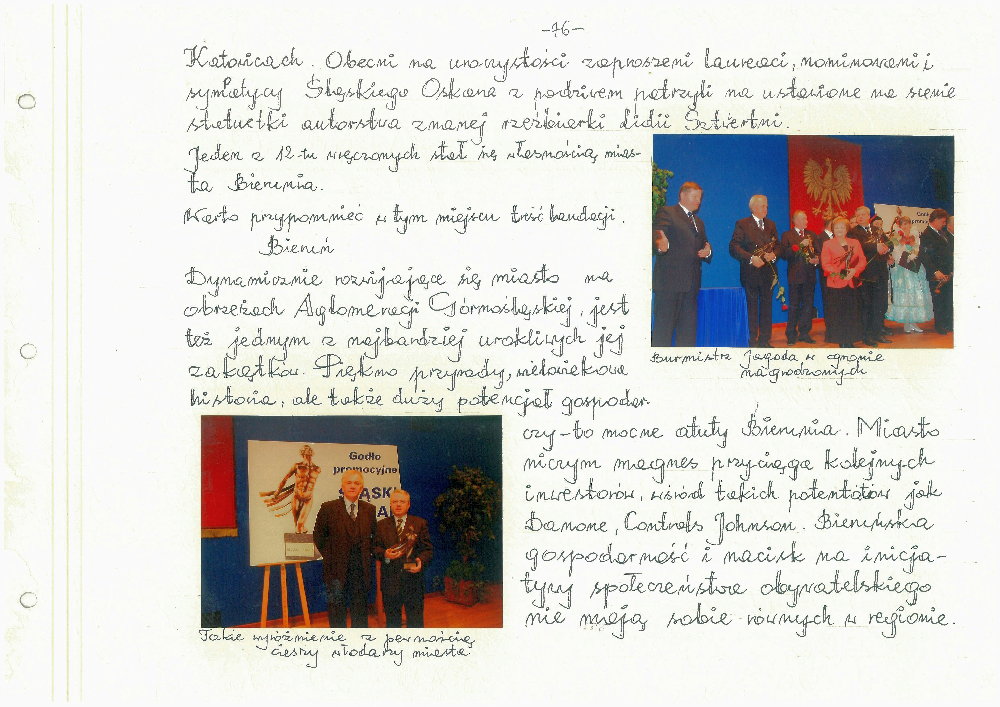 -76-
Katowicach. Obecni na uroczystości zaproszeni laureaci, nominowani i
sympatycy Śląskiego Oskara z podziwem patrzyli na ustawione na scenie
statuetki autorstwa znanej rzeźbiarki Lidii Sztwertni.
Jeden z 12-tu wręczonych stał się własnością mias-
ta Bierunia.
Warto przypomnieć w tym miejscu treść laudacji.
Bieruń
Dynamicznie rozwijające się miasto na
obrzeżach Aglomeracji Górnośląskiej, jest
też jednym z najbardziej urokliwych jej
zakątków. Piękno przyrody, wielowiekowa
historia, ale także duży potencjał gospodar-
Burmistrz Jagoda w gronie
nagrodzonych
czy-to mocne atuty Bierunia. Miasto
niczym magnes przyciąga kolejnych
inwestorów, wśród takich potentatów jak
Danone, Controls Johnson. Bieruńska
gospodarność i nacisk na inicja-
tywy społeczeństwa obywatelskiego
nie mają sobie równych w regionie.
Godło
promocyjne
ŚLĄSKI
Takie wyróżnienie z pewnością
cieszy włodarzy miasta